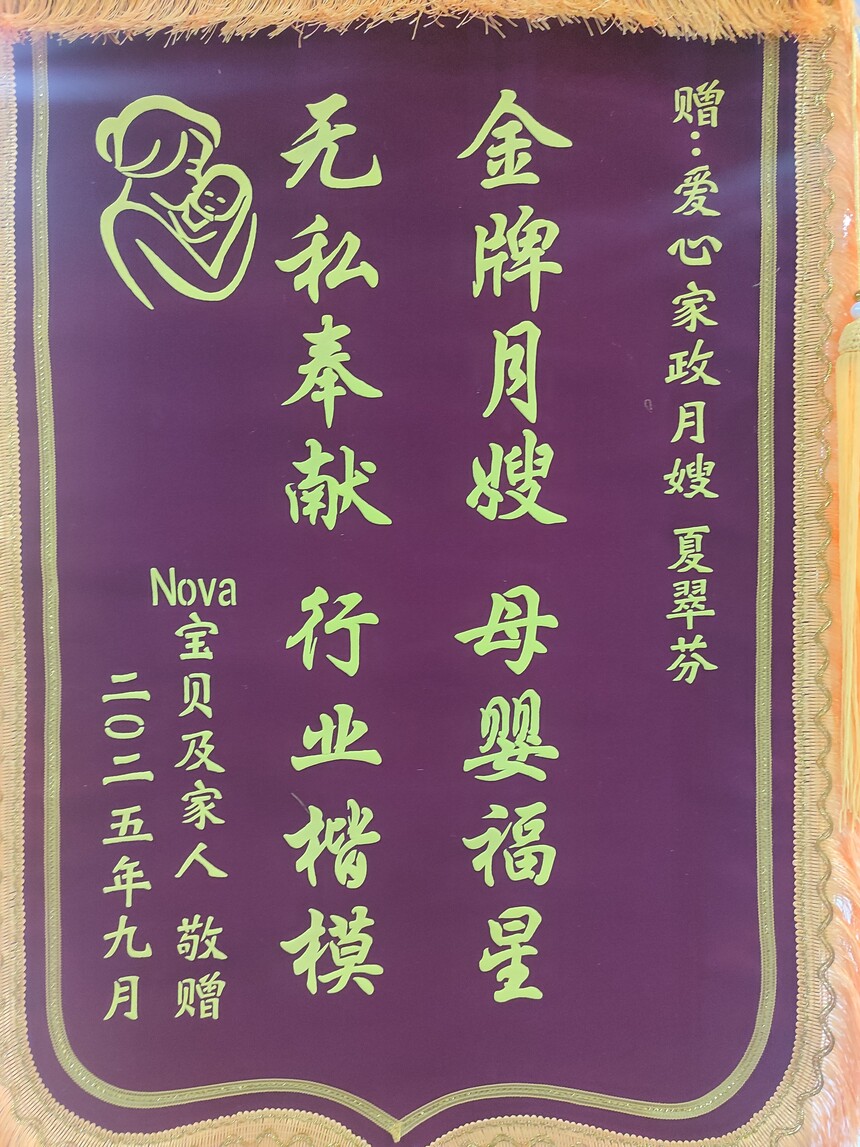 赠：爱心家政月嫂 夏翠芬
金牌月嫂 母婴福星
无私奉献 行业楷模
Nova宝贝及家人 敬赠
二〇二五年九月